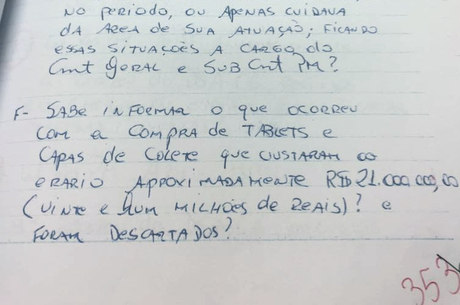 NO PERÍODO, OU APENAS CUIDAVA
DA AREA DE SUA ATUAÇÃO; FICANDO
ESSAS SITUAÇÕES A CARGO DO
Cmt GERAL e SUB Cmt PM?
F- SABE INFORMAR O QUE OCORREU
COM A COMPRA DE TABLETS e
CAPAS DE COLETE QUE CUSTARAM AO
ERARIO APROXIMADAMENTE R$ 21.000.000,00
(VINTE E HUM MILHÕES DE REAIS)? e
FORAM DESCARTADOS?
353